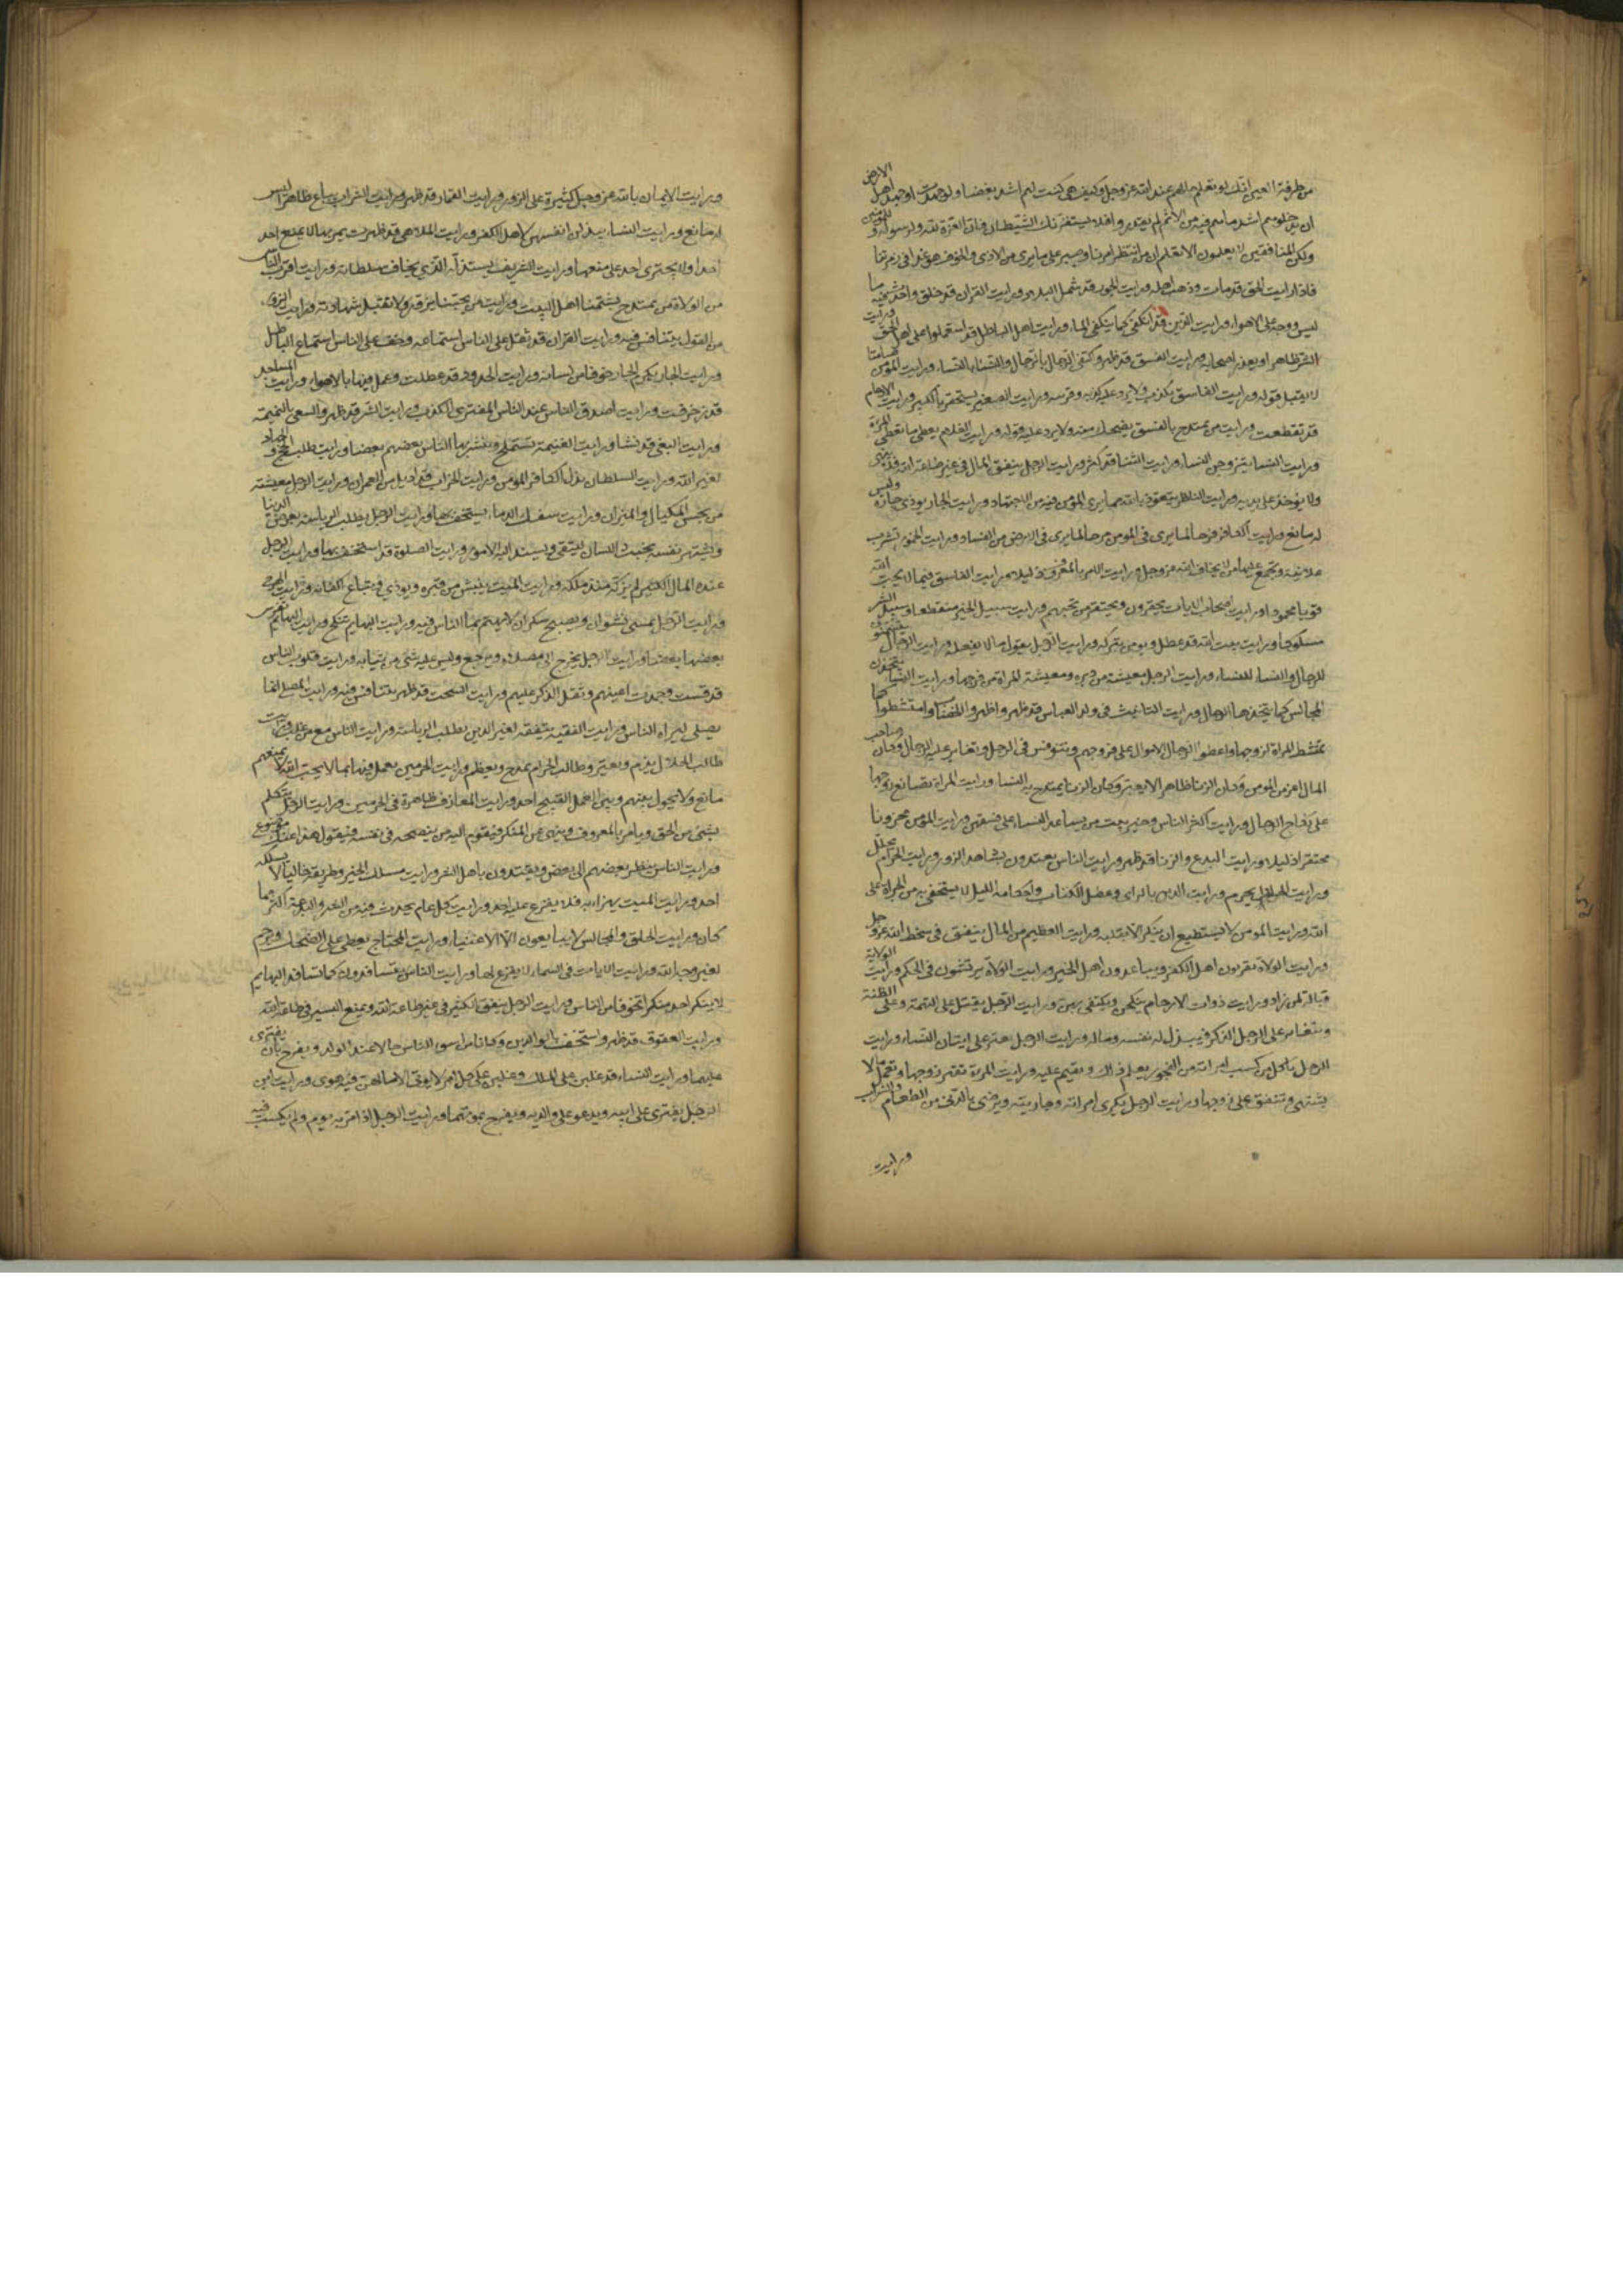 من طرفة العين انك لو تعلم ما لهم عند الله عز وجل وكيف هي كنت لهم اشد بغضا ولو جهدت او جهد اهل الارض
ان يدخلوهم اشد ما هم فيه من الاثم لم يقدروا فلا يستفزنك الشيطان فان العزة لله ولرسوله وللمؤمنين
ولكن المنافقين لا يعلمون الا تعلم ان من انتظر امرنا وصبر على ما يرى من الاذى والخوف هو غدا في زمرتنا
فاذا رايت الحق قد مات وذهب اهله ورايت الجور قد شمل البلاد ورايت القران قد خلق واحدث فيه ما
ليس ووجه على الاهواء ورايت الدين قد انكفى كما ينكفى الماء ورايت اهل الباطل قد استعملوا على اهل الحق ورايت
الشر ظاهرا ويعذر اصحابه ورايت الفسق قد ظهر واكتفى الرجال بالرجال والنساء بالنساء ورايت المؤمن صامتا
لا يقبل قوله ورايت الفاسق يكذب ولا يرد عليه كذبه وفريته ورايت الصغير يستحقر بالكبير ورايت الارحام
قد تقطعت ورايت من يمتدح بالفسق يضحك منه ولا يرد عليه قوله ورايت الغلام يعطى ما تعطى المراة
ورايت النساء يتزوجن النساء ورايت الثناء قد كثر ورايت الرجل ينفق المال في غير طاعة الله فلا ينهى
ولا يؤخذ على يديه ورايت الناظر يتعوذ بالله مما يرى المؤمن فيه من الاجتهاد ورايت الجار يوذي جاره وليس
له مانع ورايت الكافر فرحا لما يرى في المؤمن مرحا لما يرى في الارض من الفساد ورايت الخمور تشرب
علانية ويجتمع عليها من لا يخاف الله عز وجل ورايت الامر بالمعروف ذليلا ورايت الفاسق فيما لا يحب الله
قويا محمودا ورايت اصحاب الايات يحقرون ويحتقر من يحبهم ورايت سبيل الخير منقطعا وسبيل الشر
مسلوكا ورايت بيت الله قد عطل ويومر بتركه ورايت الرجل يقول ما لا يفعله ورايت الرجال يتسمنون
للرجال والنساء للنساء ورايت الرجل معيشته من دبره ومعيشة المراة من فرجها ورايت النساء يتخذن
المجالس كما يتخذها الرجال ورايت التانيث في ولد العباس قد ظهر واظهروا الخضاب وامتشطوا كما
تمتشط المراة لزوجها واعطوا الرجال الاموال على فروجهم وتنوفس في الرجل وتغاير عليه الرجال وكان صاحب
المال اعز من المومن وكان الربا ظاهرا لا يعير وكان الزنا يمتدح به النساء ورايت المراة تصانع زوجها
على نكاح الرجال ورايت اكثر الناس وخير بيت من يساعد النساء على فسقهن ورايت المومن محزونا
محتقرا ذليلا ورايت البدع والزنا قد ظهر ورايت الناس يعتدون بشاهد الزور ورايت الحرام يحلل
ورايت الحلال يحرم ورايت الدين بالراى وعطل الكتاب واحكامه ورايت الليل لا يستخفى به من الجراة على
الله ورايت المومن لا يستطيع ان ينكر الا بقلبه ورايت العظيم من المال ينفق في سخط الله عز وجل
ورايت الولاة يقربون اهل الكفر ويباعدون اهل الخير ورايت الولاة يرتشون في الحكم ورايت الولاية
قبالة لمن زاد ورايت ذوات الارحام ينكحن ويكتفى بهن ورايت الرجل يقتل على التهمة وعلى الظنة
ويتغاير على الرجل الذكر فيبذل له نفسه وماله ورايت الرجل يعير على اتيان النساء ورايت
الرجل ياكل من كسب امراته من الفجور يعلم ذلك ويقيم عليه ورايت المراة تقهر زوجها وتعمل ما لا
يشتهي وتنفق على زوجها ورايت الرجل يكري امراته وجاريته ويرضى بالدني من الطعام والشراب
ورايت
ورايت الايمان بالله عز وجل كثيرة على الزور ورايت القمار قد ظهر ورايت الشراب يباع ظاهرا ليس
له مانع ورايت النساء يبذلن انفسهن لاهل الكفر ورايت الملاهي قد ظهرت يمر بها لا يمنع احد
احدا ولا يجتري احد على منعها ورايت الشريف يستذله الذي يخاف سلطانه ورايت اقرب الناس
من الولاة من يمتدح بشتمنا اهل البيت ورايت من يحبنا يزور ولا تقبل شهادته ورايت الزور
من القول يتنافس فيه ورايت القران قد ثقل على الناس استماعه وخف على الناس استماع الباطل
ورايت الجار يكرم الجار خوفا من لسانه ورايت الحدود قد عطلت وعمل فيها بالاهواء ورايت المساجد
قد زخرفت ورايت اصدق الناس عند الناس المفترى الكذب ورايت الشر قد ظهر والسعي بالنميمة
ورايت البغى قد نشا ورايت الغيبة تستملح ويبشر بها الناس بعضهم بعضا ورايت طلب الحج والجهاد
لغير الله ورايت السلطان يذل الكافر المؤمن ورايت الخراب قد اديل من العمران ورايت الرجل معيشته
من بخس المكيال والميزان ورايت سفك الدماء يستخف بها ورايت الرجل يطلب الرياسة لعرض الدنيا
ويشتهر نفسه بخبث اللسان ليتقى ويسند اليه الامور ورايت الصلوة قد استخف بها ورايت الرجل
عنده المال الكثير لم يزكه منذ ملكه ورايت الميت ينبش من قبره ويوذى ويباع اكفانه ورايت الهرج
ورايت الرجل يمسي نشوان ويصبح سكران لا يهتم بما الناس فيه ورايت البهايم تنكح ورايت البهايم يفرس
بعضها بعضا ورايت الرجل يخرج الى مصلاه ويرجع وليس عليه شي من ثيابه ورايت قلوب الناس
قد قست وجمدت اعينهم وثقل الذكر عليهم ورايت السحت قد ظهر يتنافس فيه ورايت المصلي انما
يصلى ليراه الناس ورايت الفقيه يتفقه لغير الدين يطلب الرياسة ورايت الناس مع من غلب ورايت
طالب الحلال يذم ويعير وطالب الحرام يمدح ويعظم ورايت الحرمين يعمل فيهما بما لا يحب الله لا يمنعهم
مانع ولا يحول بينهم وبين العمل القبيح احد ورايت المعازف ظاهرة في الحرمين ورايت الرجل يتكلم
بشي من الحق ويامر بالمعروف وينهى عن المنكر فيقوم اليه من ينصحه في نفسه فيقول هذا عنك موضوع
ورايت الناس ينظر بعضهم الى بعض ويقتدون باهل الشر ورايت مسلك الخير وطريقه خاليا لا يسلكه
احد ورايت الميت يهزاء به فلا يفزع عليه احد ورايت كل عام يحدث فيه من الشر والبدعة اكثر مما
كان ورايت الخلق والمجالس لا يتابعون الا الاغنياء ورايت المحتاج يعطى على الضحك ويرحم
لغير وجه الله ورايت الايات في السماء لا يفزع لها ورايت الناس يتسافدون كما تتسافد البهايم
لا ينكر احد منكرا تخوفا من الناس ورايت الرجل ينفق الكثير في غير طاعة الله ويمنع اليسير في طاعة الله
ورايت العقوق قد ظهر واستخف بالوالدين وكانا من اسوء الناس حالا عند الولد ويفرح بان يفترى
عليهما ورايت النساء قد غلبن على الملك وغلبن على كل امر لا يوتى الا ما لهن فيه هوى ورايت ابن
الرجل يفترى على ابيه ويدعو على والديه ويفرح بموتهما ورايت الرجل اذا مر به يوم ولم يكسب فيه